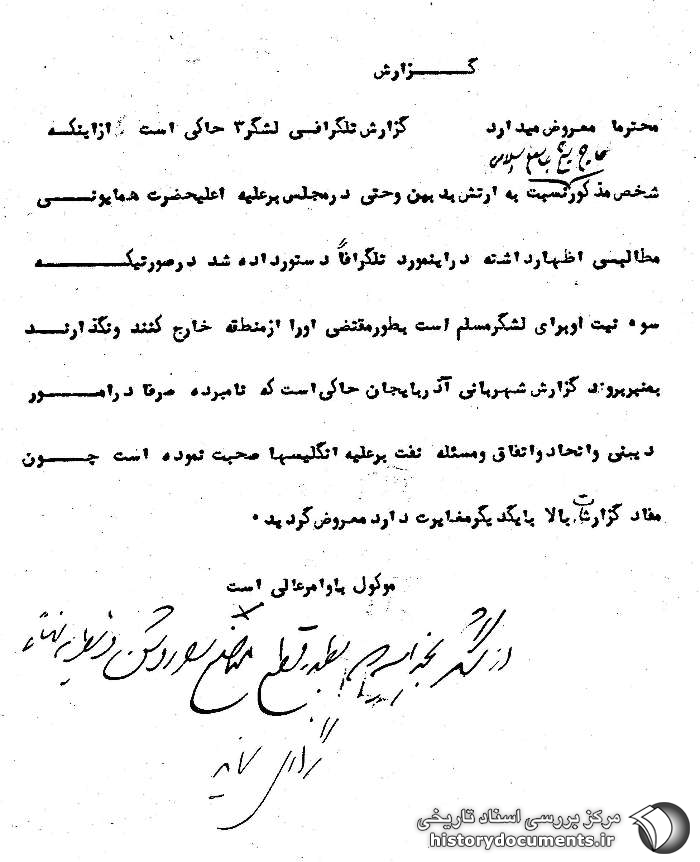 گزارش
محترما معروض میدارد گزارش تلگرافی لشگر۳ حاکی است از اینکه
حاج شیخ عباسعلی اسلامی
شخص مذکور نسبت به ارتش بدبین وحتی درمجلس برعلیه اعلیحضرت همایونی
مطالبی اظهارداشته دراینمورد تلگرافاً دستورداده شد درصورتیکه
سوء نیت اوبرای لشگرمسلم است بطورمقتضی اورا ازمنطقه خارج کنند ونگذارند
بمنبربرود گزارش شهربانی آذربایجان حاکی است که نامبرده صرفا درامور
دینی واتحاد واتفاق ومسئله نفت برعلیه انگلیسها صحبت نموده است چون
مفاد گزارشات بالا بایکدیگرمغایرت دارد معروض گردید ۰
موکول باوامرعالی است
از لشگر بخواهید بطور قطع موضوع را روشن و نظریه
گزارش نمایند
مرکز بررسی اسناد تاریخی
historydocuments.ir